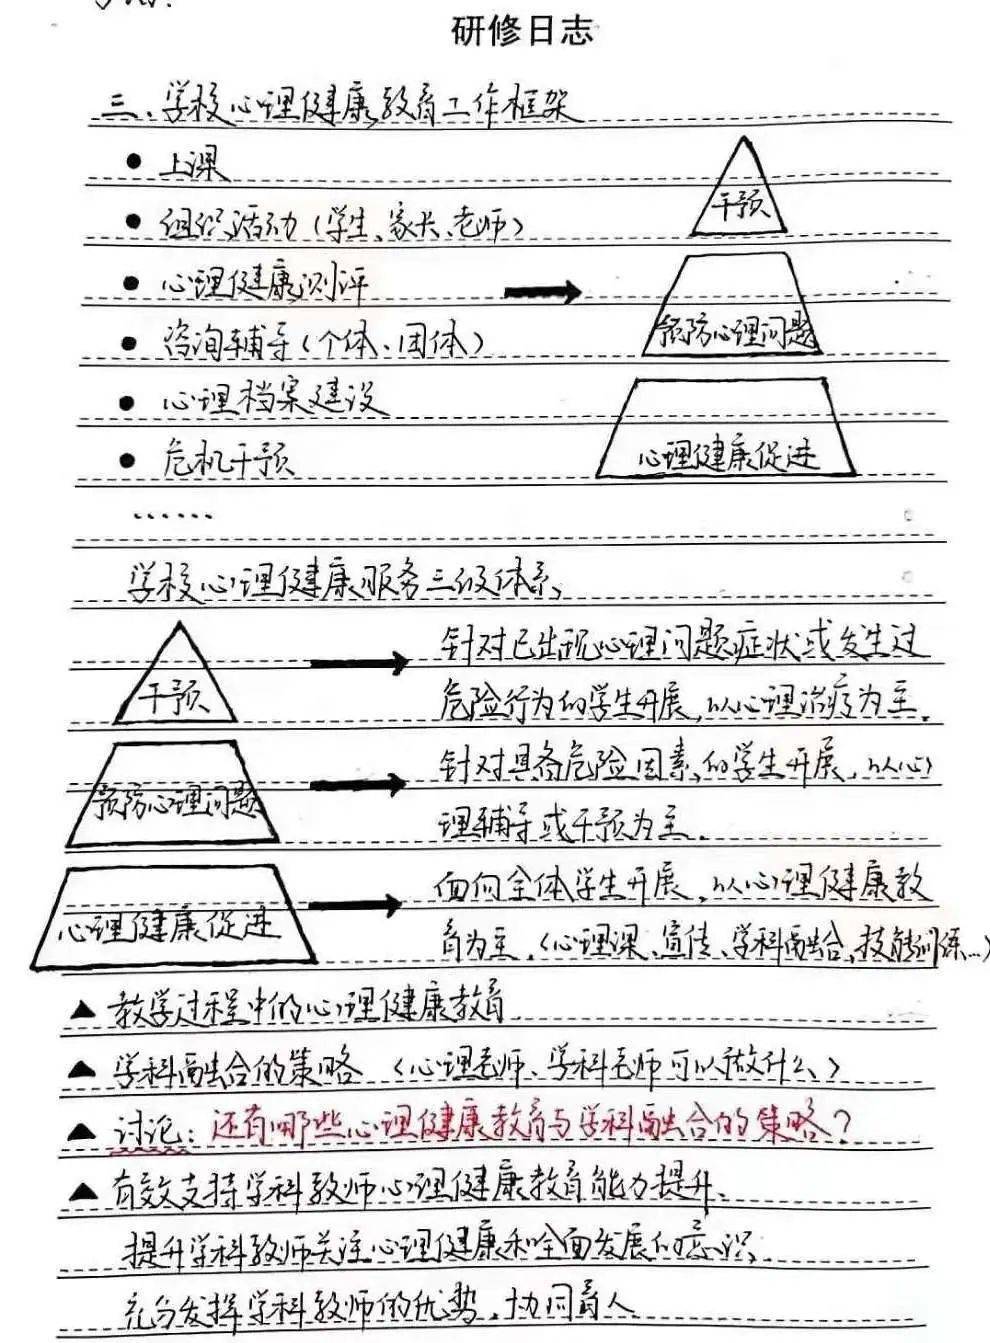 研修日志
三、学校心理健康教育工作框架
● 上课
● 组织活动(学生、家长、老师)
● 心理健康测评
● 咨询辅导(个体、团体)
● 心理档案建设
● 危机干预
......
干预
预防心理问题
心理健康促进
学校心理健康服务三级体系、
干预
针对已出现心理问题症状或发生过
危险行为的学生开展,以心理治疗为主.
预防心理问题
针对具备危险因素的学生开展,以心
理辅导或干预为主.
心理健康促进
面向全体学生开展,以心理健康教
育为主.(心理课、宣传、学科融合、技能训练...)
▲ 教学过程中的心理健康教育
▲ 学科融合的策略 (心理老师、学科老师可以做什么)
▲ 讨论:还有哪些心理健康教育与学科融合的策略?
▲ 有效支持学科教师心理健康教育能力提升、
提升学科教师关注心理健康和全面发展的意识、
充分发挥学科教师的优势,协同育人